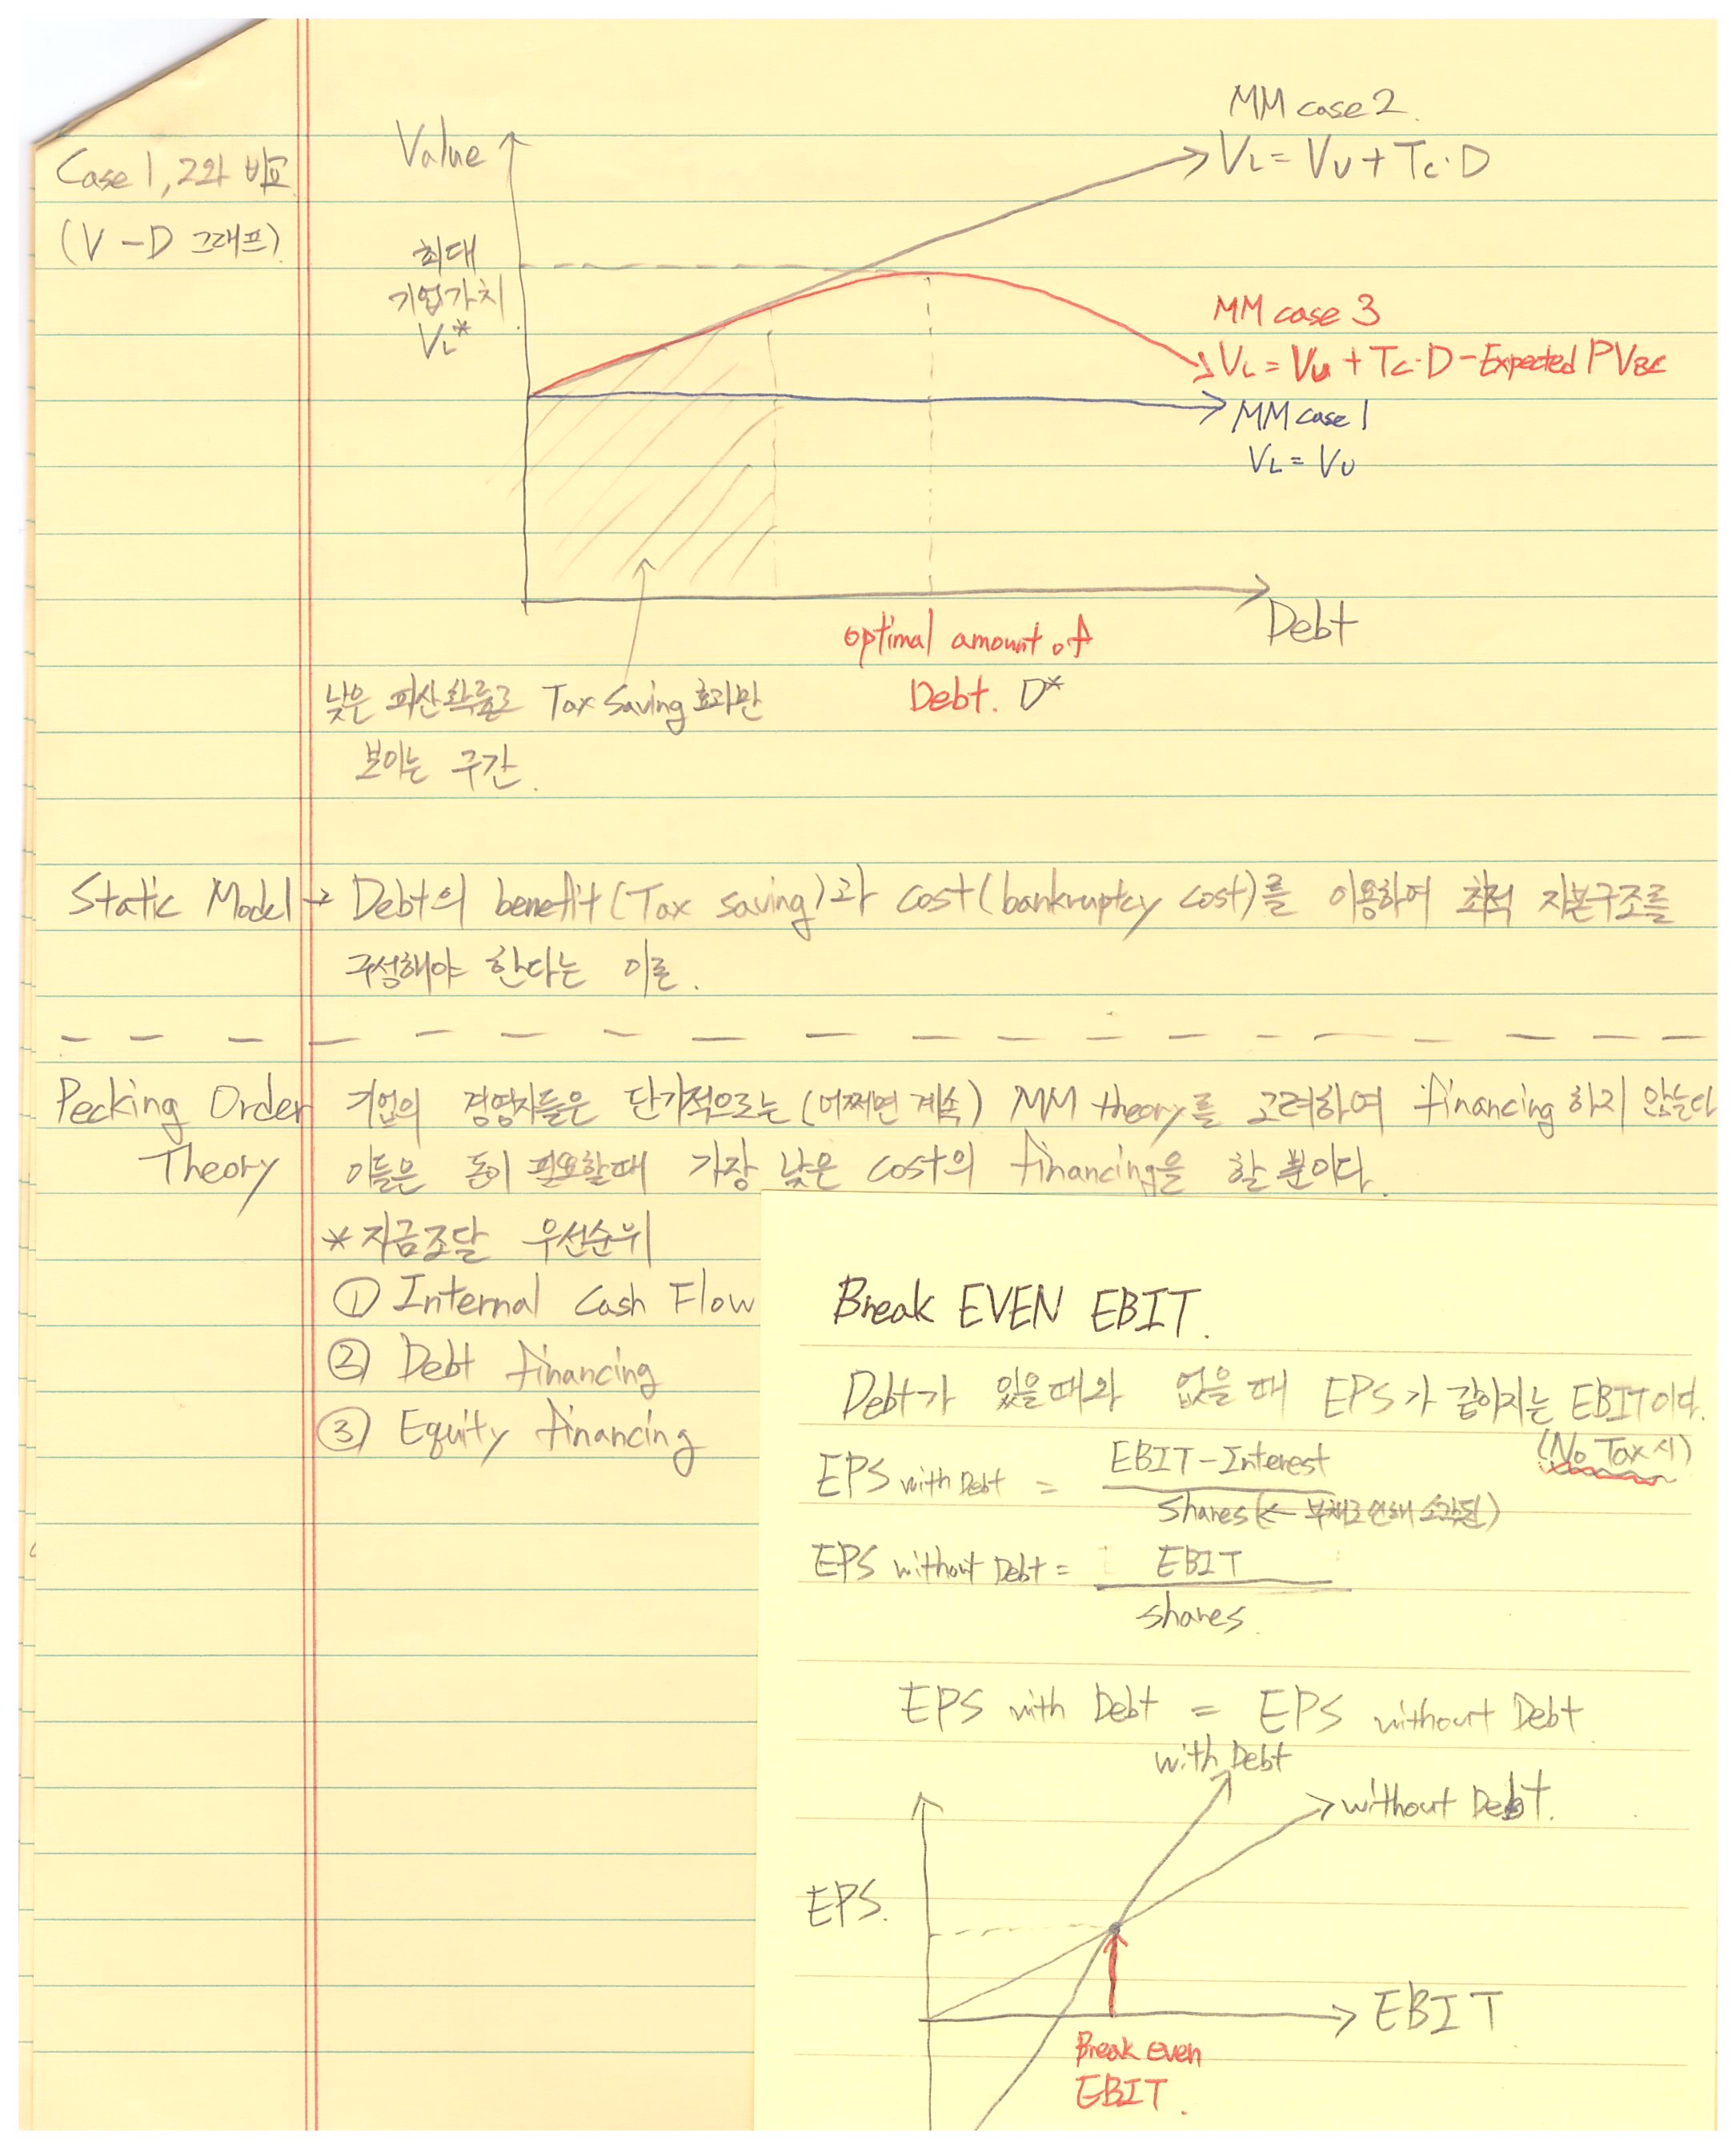 Case 1, 2와 비교
(V - D 그래프)
Value
최대
기업가치
VL*
MM case 2.
VL = VU + Tc · D
MM case 3
VL = Vu + Tc · D - Expected PVBC
MM case 1
VL = VU
Debt
optimal amount of
Debt. D*
낮은 파산확률로 Tax Saving 효과만
보이는 구간.
Static Model → Debt의 benefit (Tax saving)과 cost (bankruptcy cost)를 이용하여 최적 자본구조를
구성해야 한다는 이론.
Pecking Order 기업의 경영자들은 단기적으로는 (어쩌면 계속) MM theory를 고려하여 financing 하지 않는다
Theory 이들은 돈이 필요할때 가장 낮은 cost의 financing을 할 뿐이다.
* 자금조달 우선순위
① Internal Cash Flow
② Debt financing
③ Equity financing
Break EVEN EBIT.
Debt가 있을때와 없을때 EPS가 같아지는 EBIT이다.
(No Tax시)
EPS with Debt = EBIT - Interest
shares (← 부채로 인해 소각된)
EPS without Debt = EBIT
shares.
EPS with Debt = EPS without Debt
with Debt
without Debt.
EPS.
EBIT
Break even
EBIT.